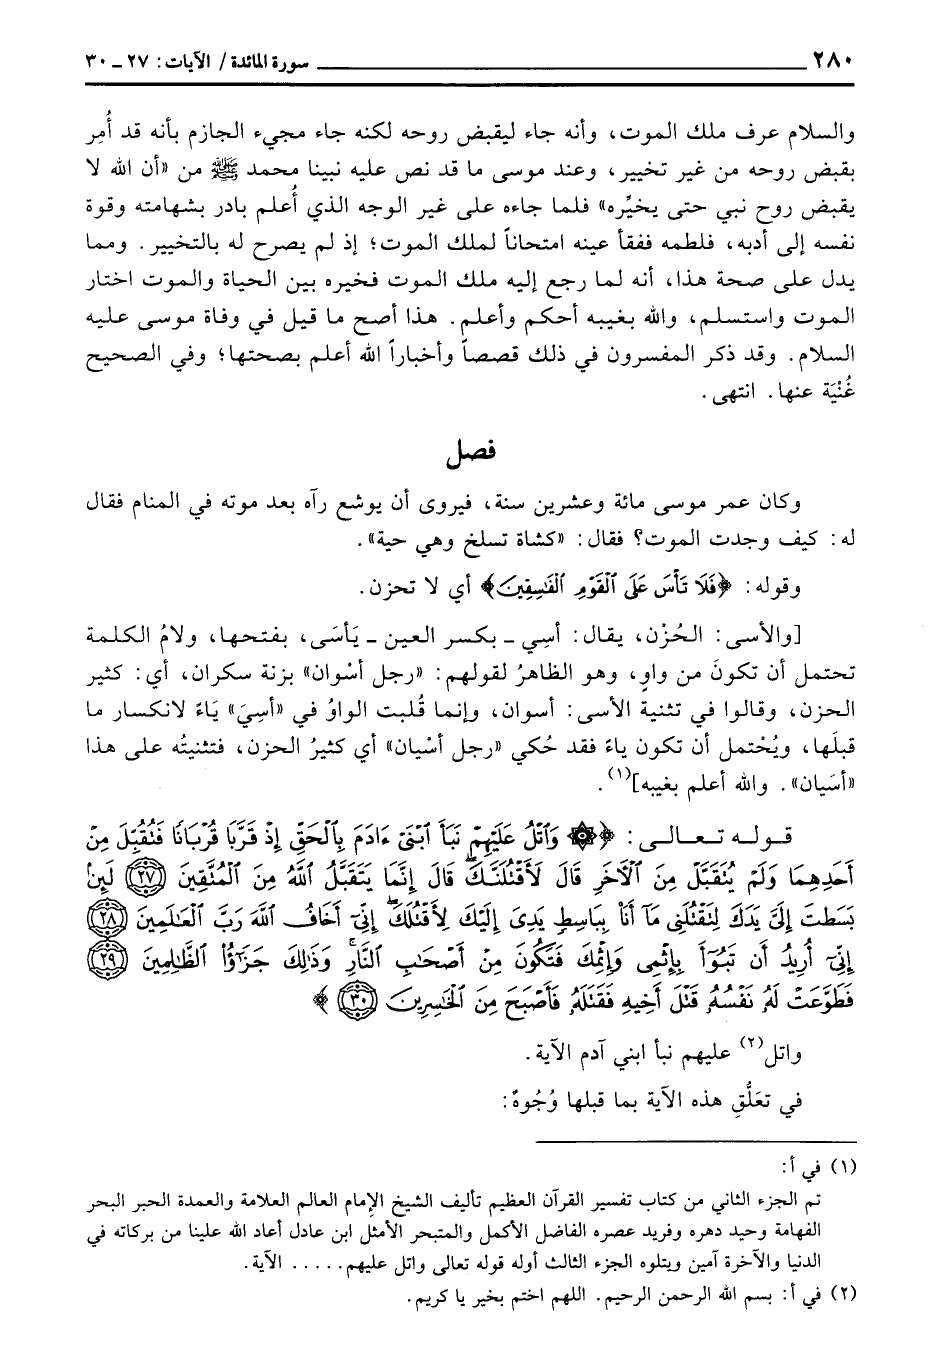 ٢٨٠ سورة المائدة / الآيات: ٢٧ ـ ٣٠
والسلام عرف ملك الموت، وأنه جاء ليقبض روحه لكنه جاء مجيء الجازم بأنه قد أُمِر
بقبض روحه من غير تخيير، وعند موسى ما قد نص عليه نبينا محمد ﷺ من «أن الله لا
يقبض روح نبي حتى يخيِّره» فلما جاءه على غير الوجه الذي أُعلم بادر بشهامته وقوة
نفسه إلى أدبه، فلطمه ففقأ عينه امتحاناً لملك الموت؛ إذ لم يصرح له بالتخيير. ومما
يدل على صحة هذا، أنه لما رجع إليه ملك الموت فخيره بين الحياة والموت اختار
الموت واستسلم، والله بغيبه أحكم وأعلم. هذا أصح ما قيل في وفاة موسى عليه
السلام. وقد ذكر المفسرون في ذلك قصصاً وأخباراً الله أعلم بصحتها؛ وفي الصحيح
غُنْيَة عنها. انتهى.
فصل
وكان عمر موسى مائة وعشرين سنة، فيروى أن يوشع رآه بعد موته في المنام فقال
له: كيف وجدت الموت؟ فقال: «كشاة تسلخ وهي حية».
وقوله: ﴿فَلَا تَأْسَ عَلَى ٱلْقَوْمِ ٱلْفَٰسِقِينَ﴾ أي لا تحزن.
[والأسى: الحُزْن، يقال: أسِي ـ بكسر العين ـ يَأسَى، بفتحها، ولامُ الكلمة
تحتمل أن تكونَ من واوٍ، وهو الظاهرُ لقولهم: «رجل أسْوان» بزنة سكران، أي: كثير
الحزن، وقالوا في تثنية الأسى: أسوان، وإنما قُلبت الواوُ في «أسِيَ» يَاءً لانكسار ما
قبلَها، ويُحْتمل أن تكون ياءً فقد حُكي «رجل أسْيان» أي كثيرُ الحزن، فتثنيتُه على هذا
«أسَيان». والله أعلم بغيبه](١).
قوله تعالى: ﴿۞ وَٱتْلُ عَلَيْهِمْ نَبَأَ ٱبْنَىْ ءَادَمَ بِٱلْحَقِّ إِذْ قَرَّبَا قُرْبَانًا فَتُقُبِّلَ مِنْ
أَحَدِهِمَا وَلَمْ يُتَقَبَّلْ مِنَ ٱلْأَخَرِ قَالَ لَأَقْتُلَنَّكَۖ قَالَ إِنَّمَا يَتَقَبَّلُ ٱللَّهُ مِنَ ٱلْمُتَّقِينَ ﴿٢٧﴾ لَئِنۢ
بَسَطتَ إِلَىَّ يَدَكَ لِتَقْتُلَنِى مَآ أَنَا۠ بِبَاسِطٍ يَدِىَ إِلَيْكَ لِأَقْتُلَكَۖ إِنِّىٓ أَخَافُ ٱللَّهَ رَبَّ ٱلْعَٰلَمِينَ ﴿٢٨﴾
إِنِّىٓ أُرِيدُ أَن تَبُوٓأَ بِإِثْمِى وَإِثْمِكَ فَتَكُونَ مِنْ أَصْحَٰبِ ٱلنَّارِۚ وَذَٰلِكَ جَزَٰٓؤُا۟ ٱلظَّٰلِمِينَ ﴿٢٩﴾
فَطَوَّعَتْ لَهُۥ نَفْسُهُۥ قَتْلَ أَخِيهِ فَقَتَلَهُۥ فَأَصْبَحَ مِنَ ٱلْخَٰسِرِينَ ﴿٣٠﴾ ﴾
واتل(٢) عليهم نبأ ابني آدم الآية.
في تعَلُّقِ هذه الآية بما قبلها وُجُوهٌ:
(١) في أ:
تم الجزء الثاني من كتاب تفسير القرآن العظيم تأليف الشيخ الإمام العالم العلامة والعمدة الحبر البحر
الفهامة وحيد دهره وفريد عصره الفاضل الأكمل والمتبحر الأمثل ابن عادل أعاد الله علينا من بركاته في
الدنيا والآخرة آمين ويتلوه الجزء الثالث أوله قوله تعالى واتل عليهم..... الآية.
(٢) في أ: بسم الله الرحمن الرحيم. اللهم اختم بخير يا كريم.